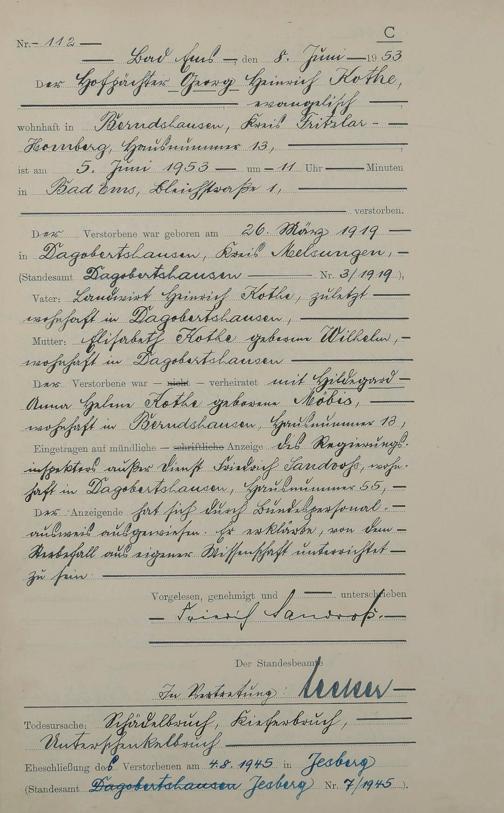 C
Nr. 112
Bad Ems, den 8. Juni 1953
Der Hofpächter Georg Heinrich Kothe,
evangelisch
wohnhaft in Berndshausen, Kreis Fritzlar-
Homberg, Hausnummer 13,
ist am 5. Juni 1953 um 11 Uhr Minuten
in Bad Ems, Bleichstraße 1,
verstorben.
Der Verstorbene war geboren am 26. März 1919
in Dagobertshausen, Kreis Melsungen,
(Standesamt Dagobertshausen Nr. 3/1919),
Vater: Landwirt Heinrich Kothe, zuletzt
wohnhaft in Dagobertshausen,
Mutter: Elisabeth Kothe geborene Wilhelm,
wohnhaft in Dagobertshausen
Der Verstorbene war – nicht – verheiratet mit Hildegard
Anna Helene Kothe geborene Möbis,
wohnhaft in Berndshausen, Hausnummer 13,
Eingetragen auf mündliche – schriftliche Anzeige des Regierungs-
inspektors außer Dienst Friedrich Sandroß, wohn-
haft in Dagobertshausen, Hausnummer 55,
Der Anzeigende hat sich durch Bundespersonal-
ausweis ausgewiesen. Er erklärte, von dem
Sterbefall aus eigener Wissenschaft unterrichtet
zu sein
Vorgelesen, genehmigt und unterschrieben
Friedrich Sandroß.
Der Standesbeamte
In Vertretung:
Todesursache: Schädelbruch, Kieferbruch,
Unterschenkelbruch
Eheschließung des Verstorbenen am 4.8.1945 in Jesberg
(Standesamt Dagobertshausen Jesberg Nr. 7/1945).